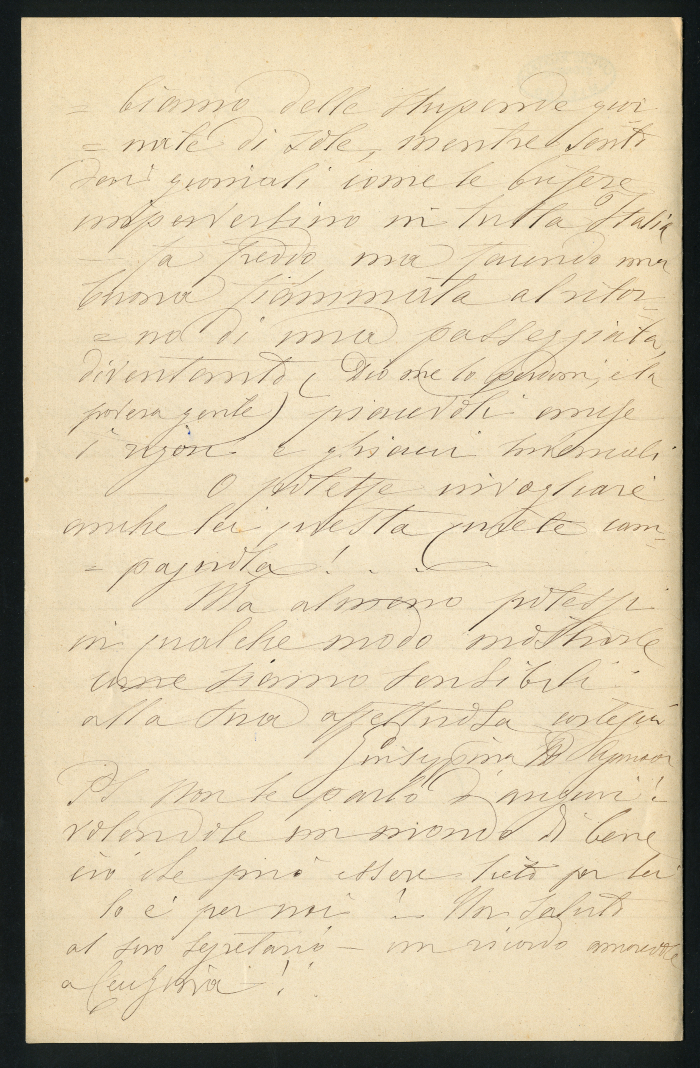 = biamo delle stupende gior
= nate di sole, mentre sento
dai giornali come le bufere
imperversino in tutta Italia
– fa freddo, ma facendo una
buona fiammata al ritor =
= no di una passeggiata,
diventando (Dio me lo perdoni, e la
povera gente) piacevoli anche
i rigori e ghiacci invernali
– O potesse invogliare
anche lei questa quiete cam =
= pagnola! . . .
Ma almeno potessi
in qualche modo mostrarle
come siamo sensibili
alla sua affettuosa cortesia
Giuseppina
PS Non le parlo d'auguri!
volendole un mondo di bene
ciò che può essere lieto per lei
lo è per noi! Un saluto
al suo segretario – un ricordo amorevole
a